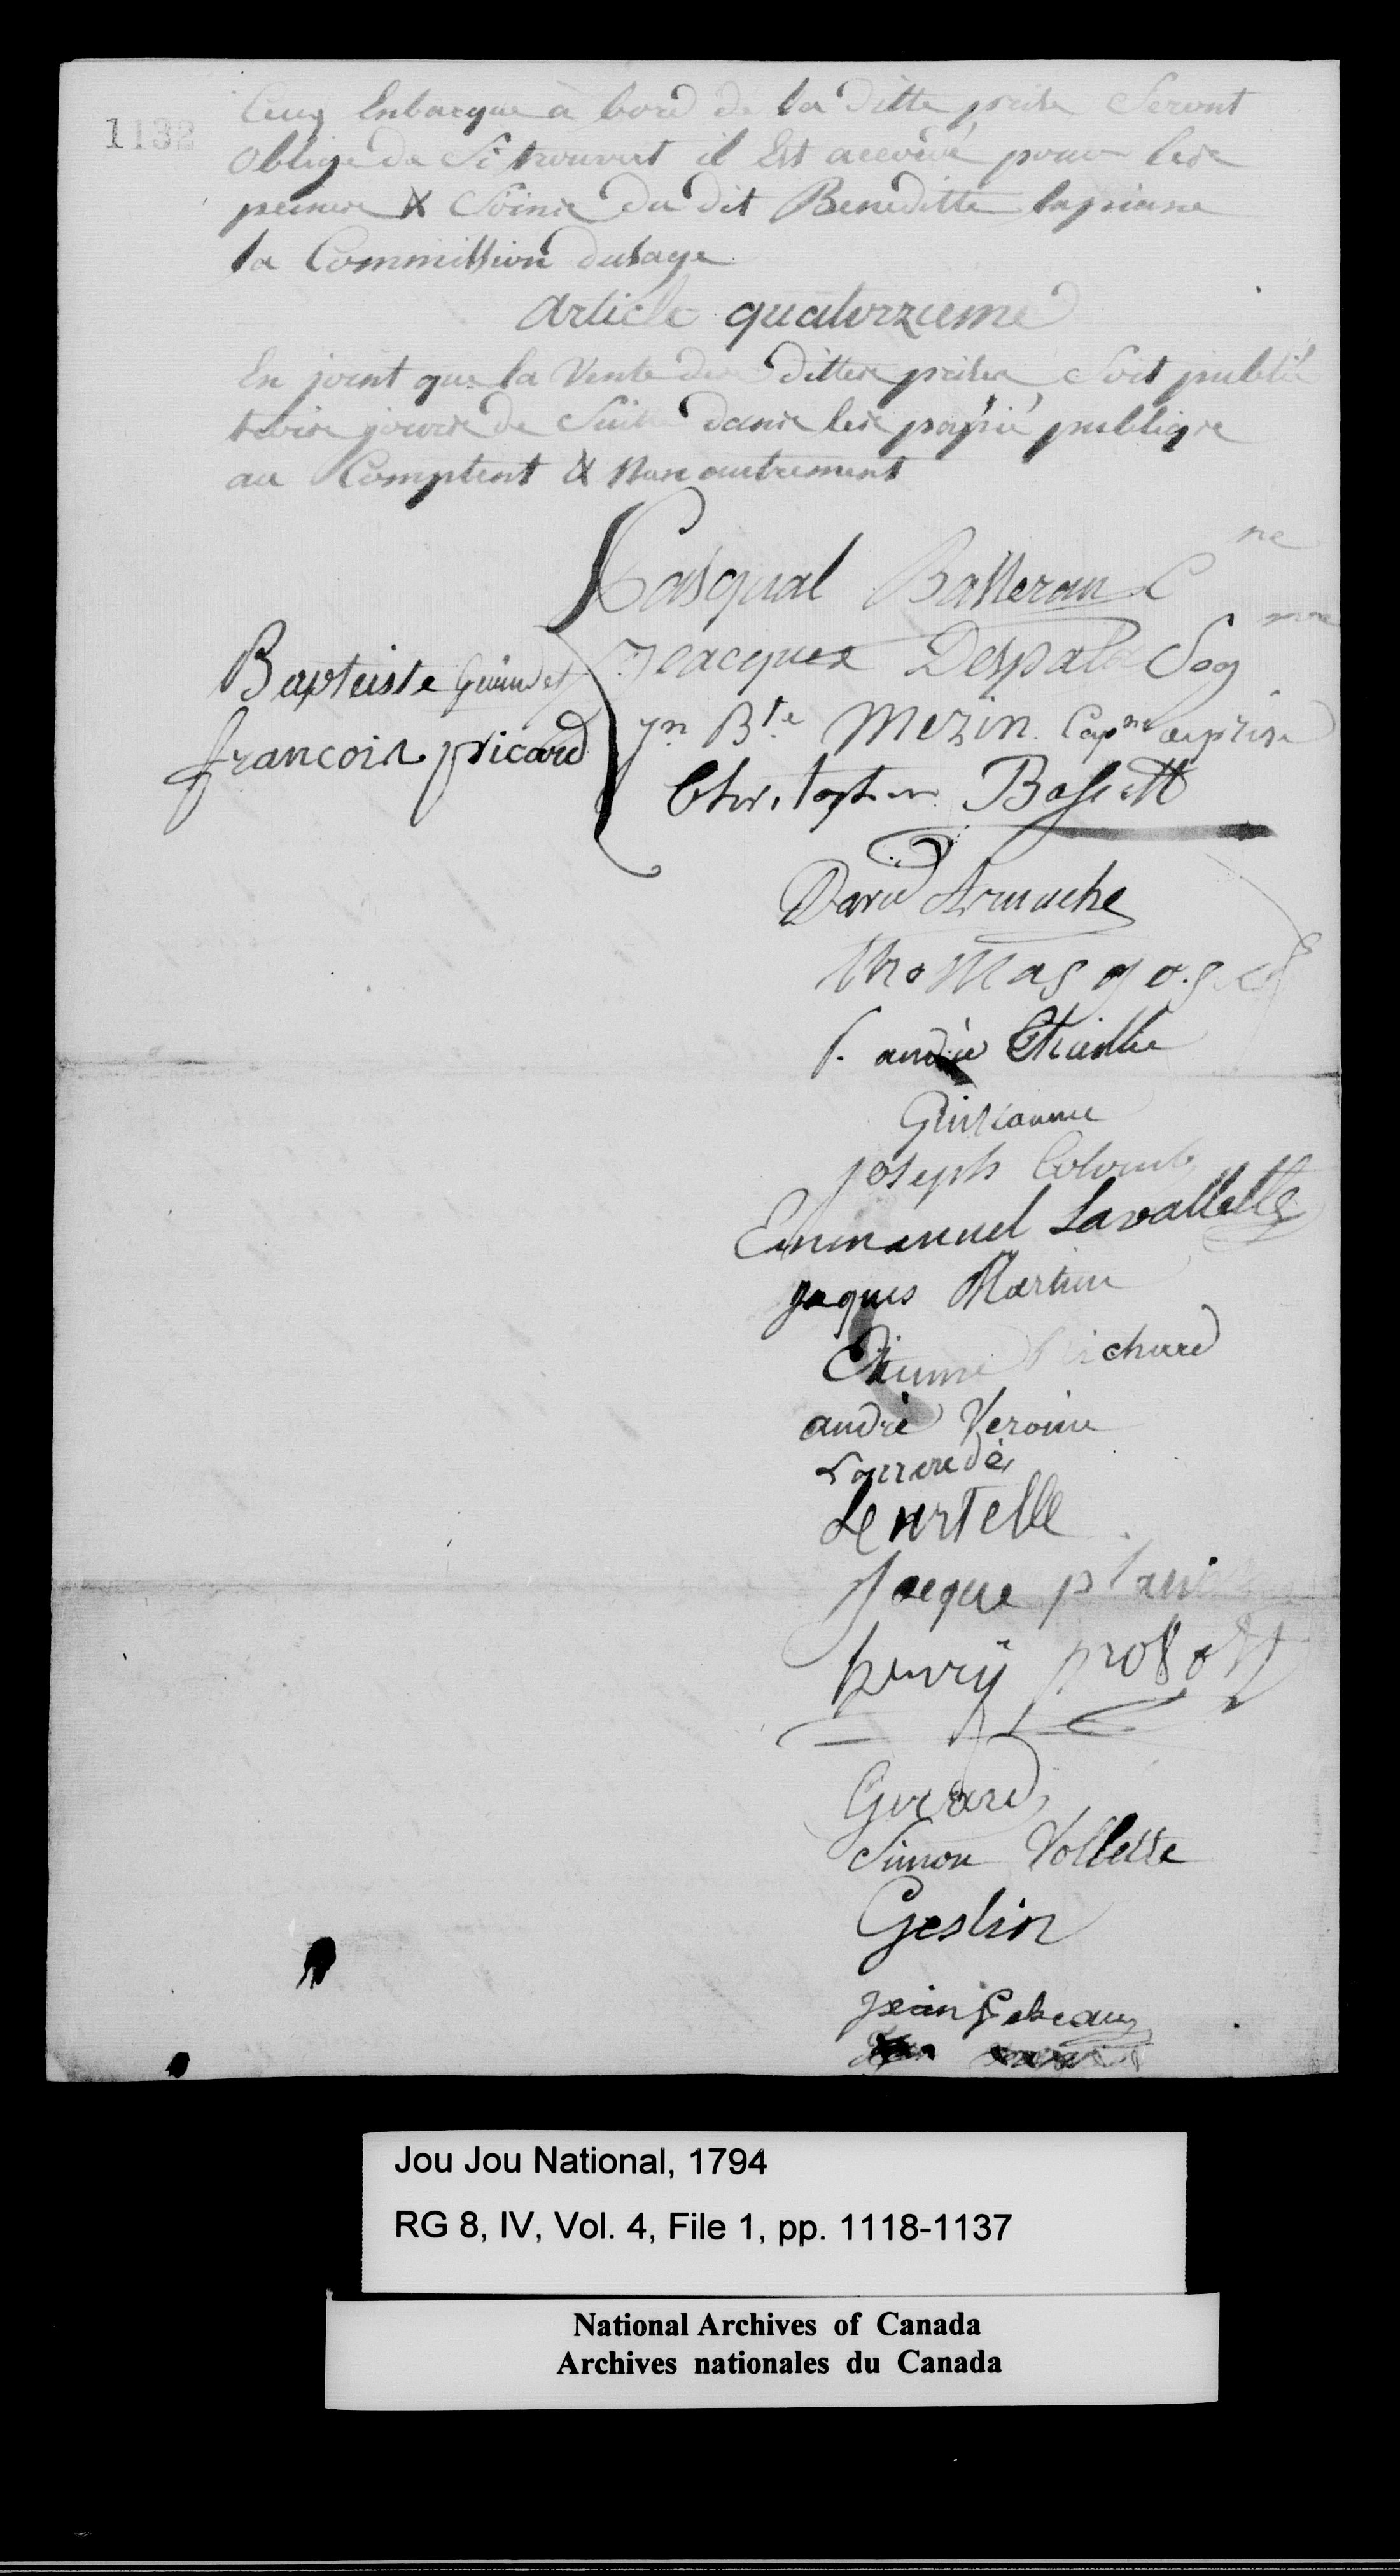 1132
Ceux Enbarque à bord de la ditte prise Seront
Oblige de Si trouvert il Est accordé pour les
peines & Soins du dit Beneditte lapiane
la Commission dusage
Article quatorzieme
En joint que la Vente des dittes prises Soit publié
trois jours de Suitte dans les papié publiqs
au Comptent & Non autrement
Pasqual Basseran Cne
Jeacques Despala Seg
Baptiste
Jn Bte Mezin Capne de prise
francois picard
Christophe Bassett
David Armuche
thomas
P. andré Etienne
Guillaume
joseph Colomb
Emmanuel Lavallette
Jaques Martin
Etienne Richard
andré Veroine
Lenrtelle
Jacque
henry probott
Gerard
Simon Vollesse
Geslin
jean
Jou Jou National, 1794
RG 8, IV, Vol. 4, File 1, pp. 1118-1137
National Archives of Canada
Archives nationales du Canada